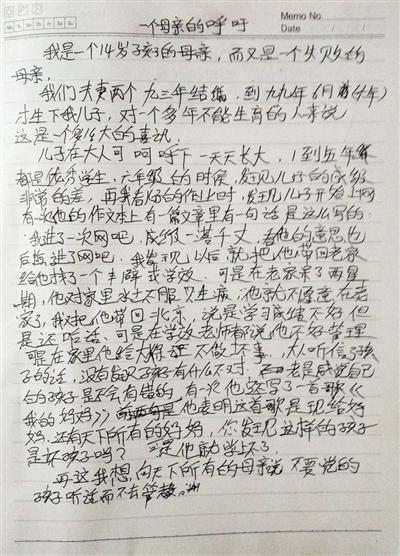 Memo No.
Date / /
一个母亲的呼吁
我是一个14岁孩子的母亲，而又是一个失败的
母亲，
我们夫妻两个九三年结婚，到九九年6月
才生下我儿子，对一个多年不能生育的人来说
这是一个多么大的喜讯，
儿子在大人呵呵护下一天天长大，1到五年级
都是优秀学生，六年级的时候，发现儿子的成绩
非常的差，再我看他的作业时，发现儿子开始上网
有次他的作文本上有一篇文章里有一句话是这么写的：
我进了一次网吧，成绩一落千丈，看他的意思也
后悔进了网吧，我发现以后就把他带回老家
给他找了一个学校，可是在老家呆了两星
期，他对家里水土不服只生病，他就不愿意在老
家了，我又把他带回北京，说是学习成绩不好但
是还哈，可是在学校老师都说他不好管理
可是在家里他给大人保证不做坏事，大人听信了孩
子的话，没有发现孩子有什么不对，老是感觉自己
的孩子是不会有错的，有次他还写了一首歌《
我的妈妈》他表明这首歌是现给妈
妈，还有天下所有的妈妈，你发现这样的孩子
是坏孩子吗？他就学坏了，
再这我想，向天下所有的母亲说不要觉的
孩子听话而不去管教。